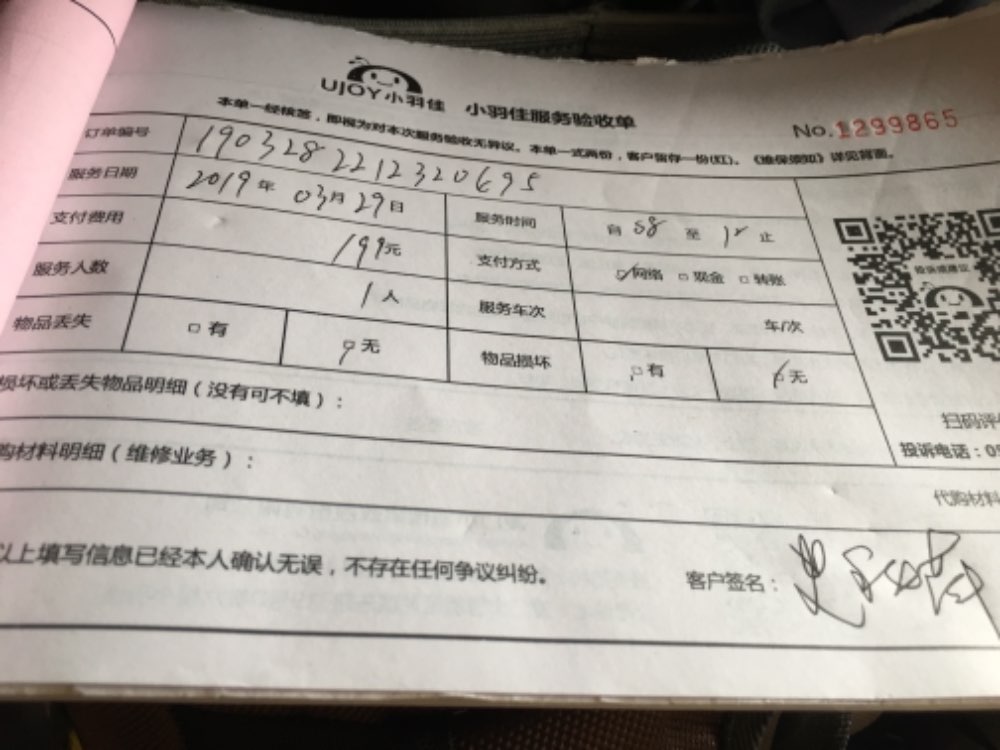 UJOY小羽佳 小羽佳服务验收单
No.1299865
本单一经核签，即视为对本次服务验收无异议。本单一式两份，客户留存一份(红)。《维保须知》详见背面。
订单编号 1903282212320695
服务日期 2019年03月29日 服务时间 自 58 至 12 止
支付费用 199元 支付方式 ☑网络 □现金 □转账
服务人数 1人 服务车次 车/次
物品丢失 □有 无 物品损坏 □有 ☑无
投诉或建议
损坏或丢失物品明细（没有可不填）：
扫码评
投诉电话：05
购材料明细（维修业务）：
代购材料
以上填写信息已经本人确认无误，不存在任何争议纠纷。
客户签名：